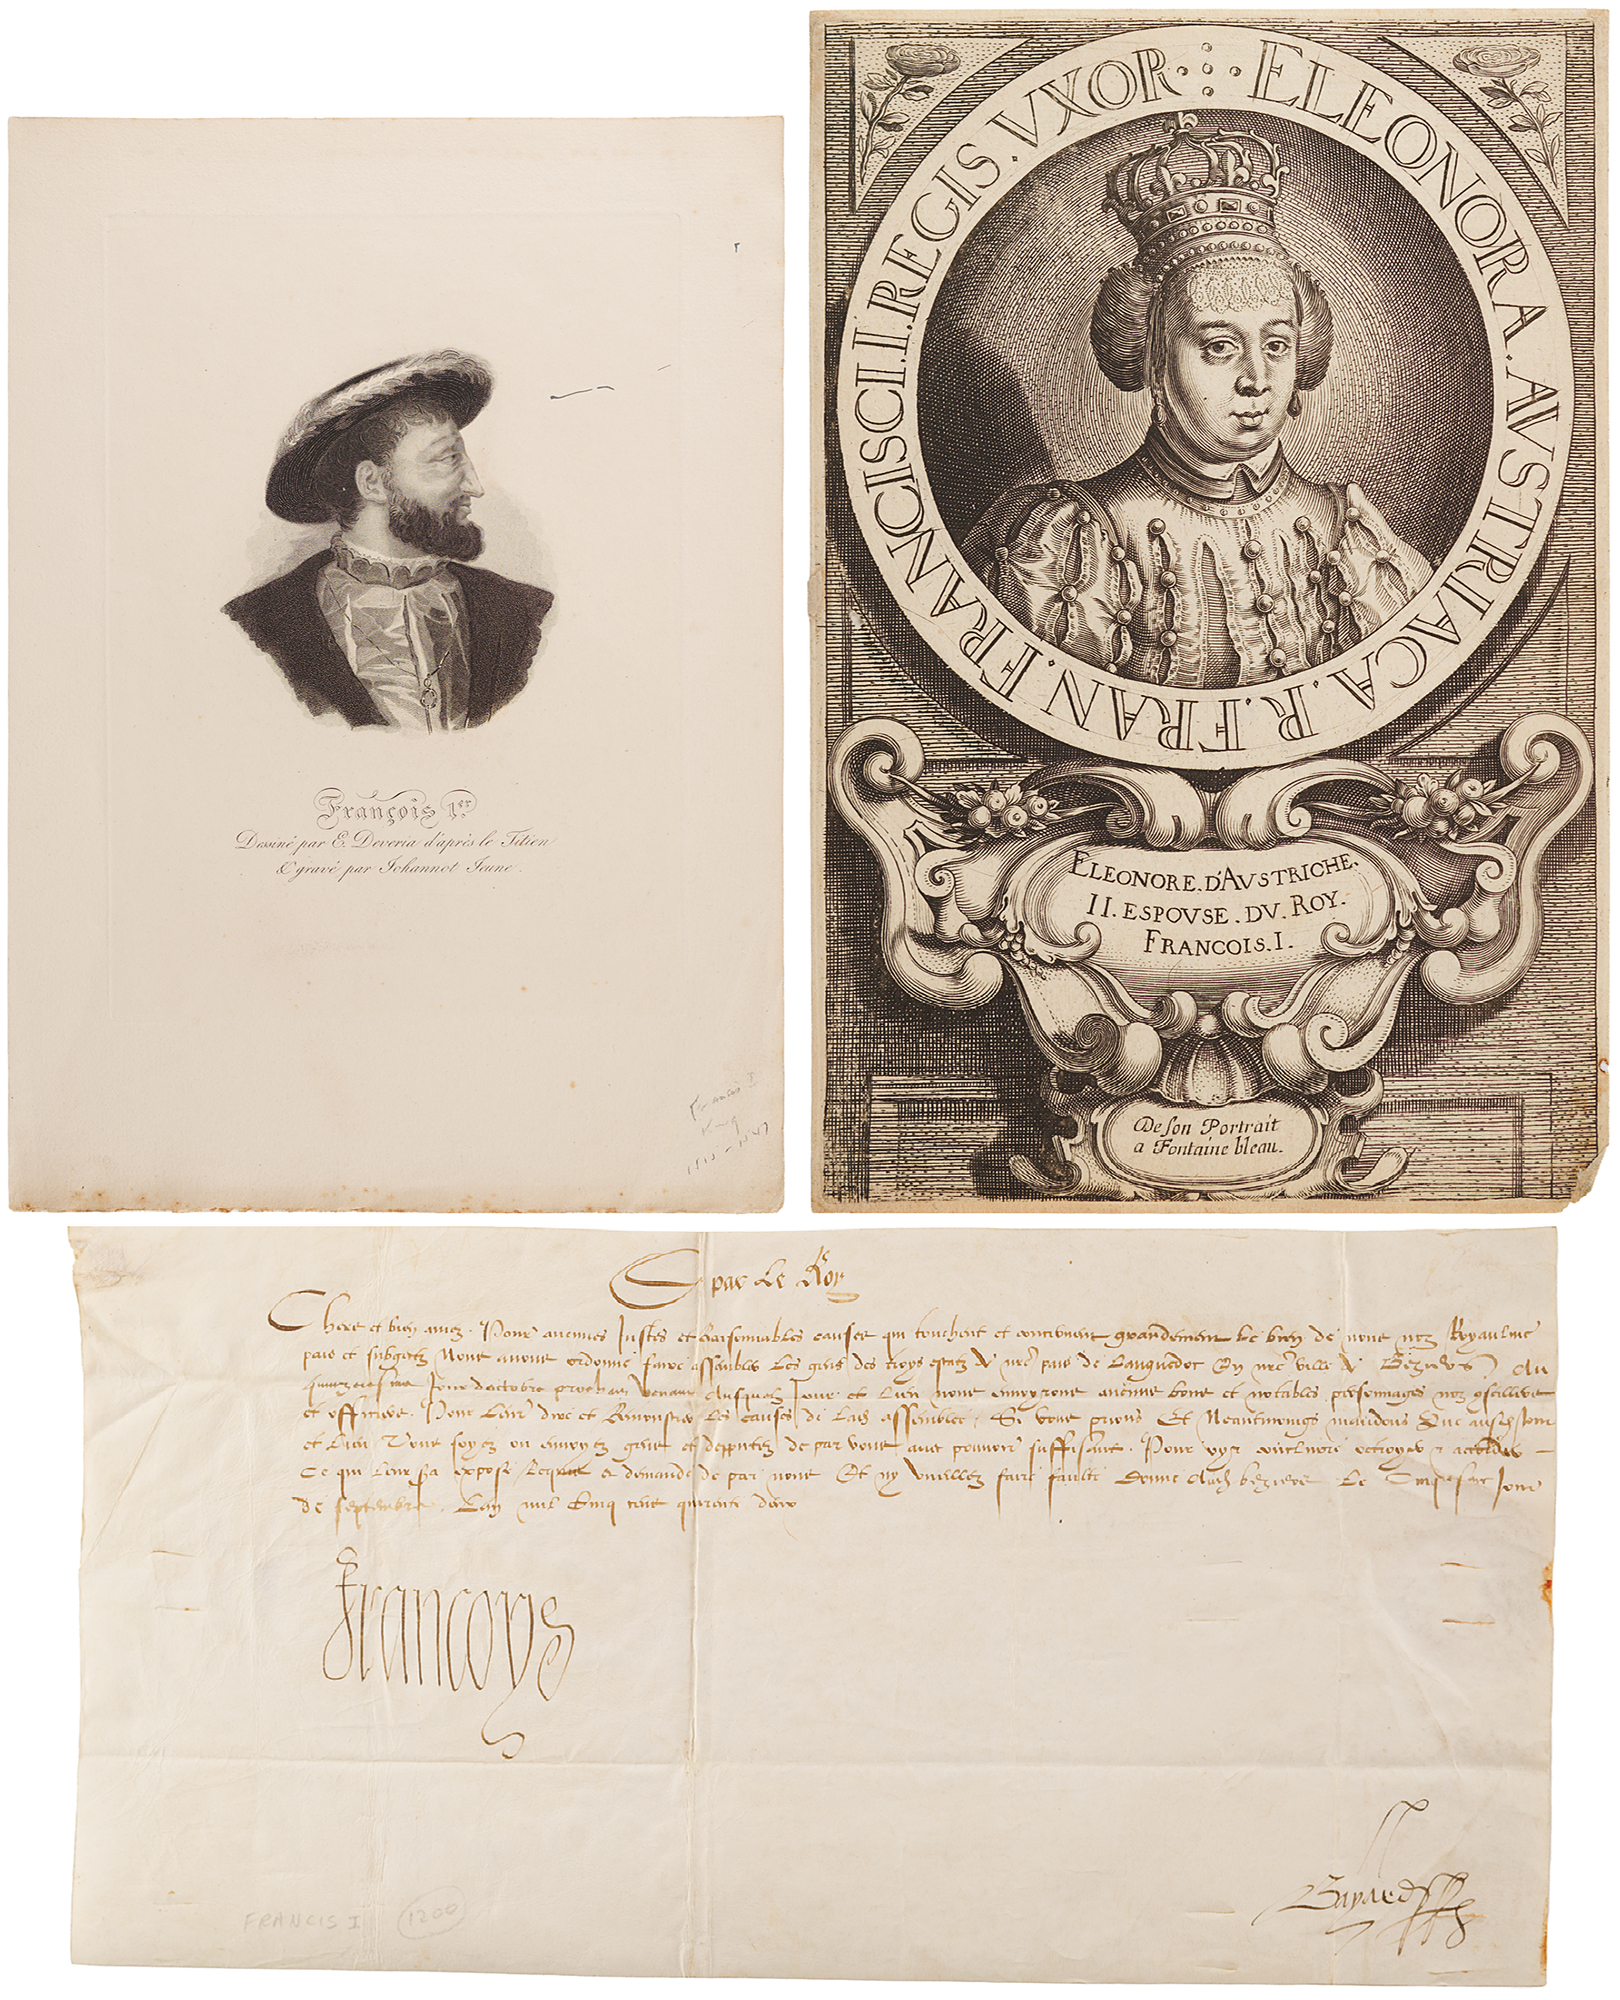 François 1er
Dessiné par E. Deveria d'après le Titien
& gravé par Johannot Jeune.
Francis I
King
1515 – 1547
ELEONORA . AVSTRIACA . R . FRAN . FRANCISCI . I . REGIS . VXOR
ELEONORE . D'AVSTRICHE .
II . ESPOVSE . DV . ROY .
FRANCOIS . I .
De son Portrait
a Fontaine bleau.
par Le Roy
Chers et bien amez . Pour aucunes Justes et Raisonnables causes qui touchent et concernent grandement Le bien de nous noz Royaulme
pais et subgectz Nous avons ordonné faire assembler Les gens des troys estatz de nre pais de Languedoc En nre ville de Beziers Au
Jour doctobre prochain venant Ausquelz Jour et Lieu nous envoyrons aucuns bons et notables personnages noz conseillers
et officiers . Pour Leur dire et Remonstrer Les causes de Lad assemblee . Si vous prions Et Neantmoings mandons Que ausd Jour
et Lieu Vous soyez ou envoyez gens et depputez de par vous avec pouvoir suffisant . Pour oyr conclure octroyer & accorder
Ce qui Leur sra exposé Requis & demandé de par nous Et ny vueillez faire faulte Donné Aud beziers Le Jour
de septembre . Lan mil Cinq cens quarante deux
Francoys
Bayard
FRANCIS I 1200